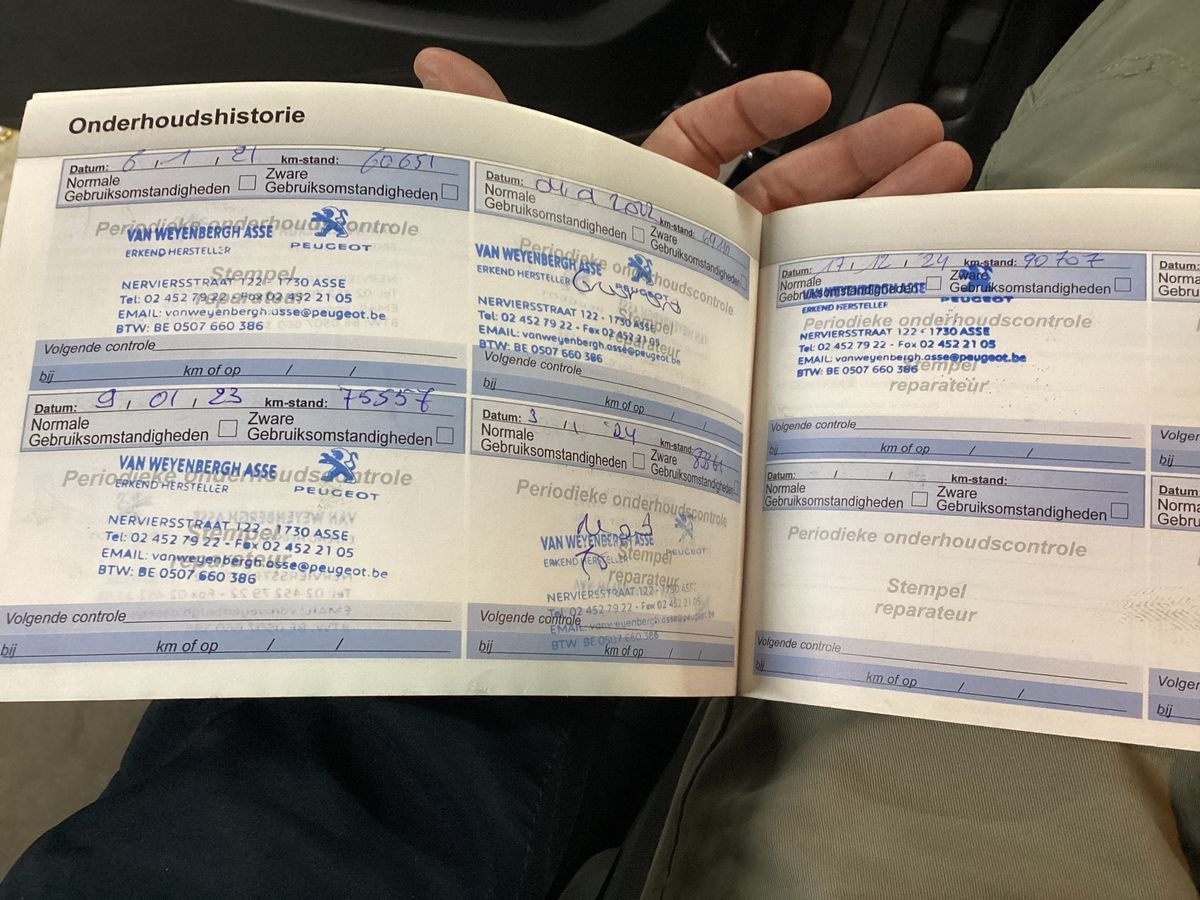 Onderhoudshistorie
Datum: 6 , 1 , 21 km-stand: 60651
Normale Gebruiksomstandigheden Zware Gebruiksomstandigheden
Periodieke onderhoudscontrole
VAN WEYENBERGH ASSE
ERKEND HERSTELLER PEUGEOT
Stempel
reparateur
NERVIERSSTRAAT 122 - 1730 ASSE
Tel: 02 452 79 22 - Fax 02 452 21 05
EMAIL: vanweyenbergh.asse@peugeot.be
BTW: BE 0507 660 386
Volgende controle
bij km of op / /
Datum: 2022 km-stand:
Normale Gebruiksomstandigheden Zware Gebruiksomstandigheden
Periodieke onderhoudscontrole
VAN WEYENBERGH ASSE
ERKEND HERSTELLER PEUGEOT
Stempel
reparateur
NERVIERSSTRAAT 122 - 1730 ASSE
Tel: 02 452 79 22 - Fax 02 452 21 05
EMAIL: vanweyenbergh.asse@peugeot.be
BTW: BE 0507 660 386
Volgende controle
bij km of op / /
Datum: 9 , 01 , 23 km-stand: 75557
Normale Gebruiksomstandigheden Zware Gebruiksomstandigheden
Periodieke onderhoudscontrole
VAN WEYENBERGH ASSE
ERKEND HERSTELLER PEUGEOT
Stempel
reparateur
NERVIERSSTRAAT 122 - 1730 ASSE
Tel: 02 452 79 22 - Fax 02 452 21 05
EMAIL: vanweyenbergh.asse@peugeot.be
BTW: BE 0507 660 386
Volgende controle
bij km of op / /
Datum: 3 24 km-stand:
Normale Gebruiksomstandigheden Zware Gebruiksomstandigheden
Periodieke onderhoudscontrole
VAN WEYENBERGH ASSE
ERKEND HERSTELLER PEUGEOT
Stempel
reparateur
NERVIERSSTRAAT 122 - 1730 ASSE
Tel: 02 452 79 22 - Fax 02 452 21 05
EMAIL: vanweyenbergh.asse@peugeot.be
BTW: BE 0507 660 386
Volgende controle
bij km of op / /
Datum: 17 , 12 , 24 km-stand: 90707
Normale Gebruiksomstandigheden Zware Gebruiksomstandigheden
VAN WEYENBERGH ASSE
ERKEND HERSTELLER PEUGEOT
Periodieke onderhoudscontrole
NERVIERSSTRAAT 122 - 1730 ASSE
Tel: 02 452 79 22 - Fax 02 452 21 05
EMAIL: vanweyenbergh.asse@peugeot.be
BTW: BE 0507 660 386
Stempel
reparateur
Volgende controle
bij km of op / /
Datum: / / km-stand:
Normale Gebruiksomstandigheden Zware Gebruiksomstandigheden
Periodieke onderhoudscontrole
Stempel
reparateur
Volgende controle
bij km of op / /
Datum:
Norma
Gebru
Volgen
bij
Datum:
Norma
Gebru
Volgen
bij